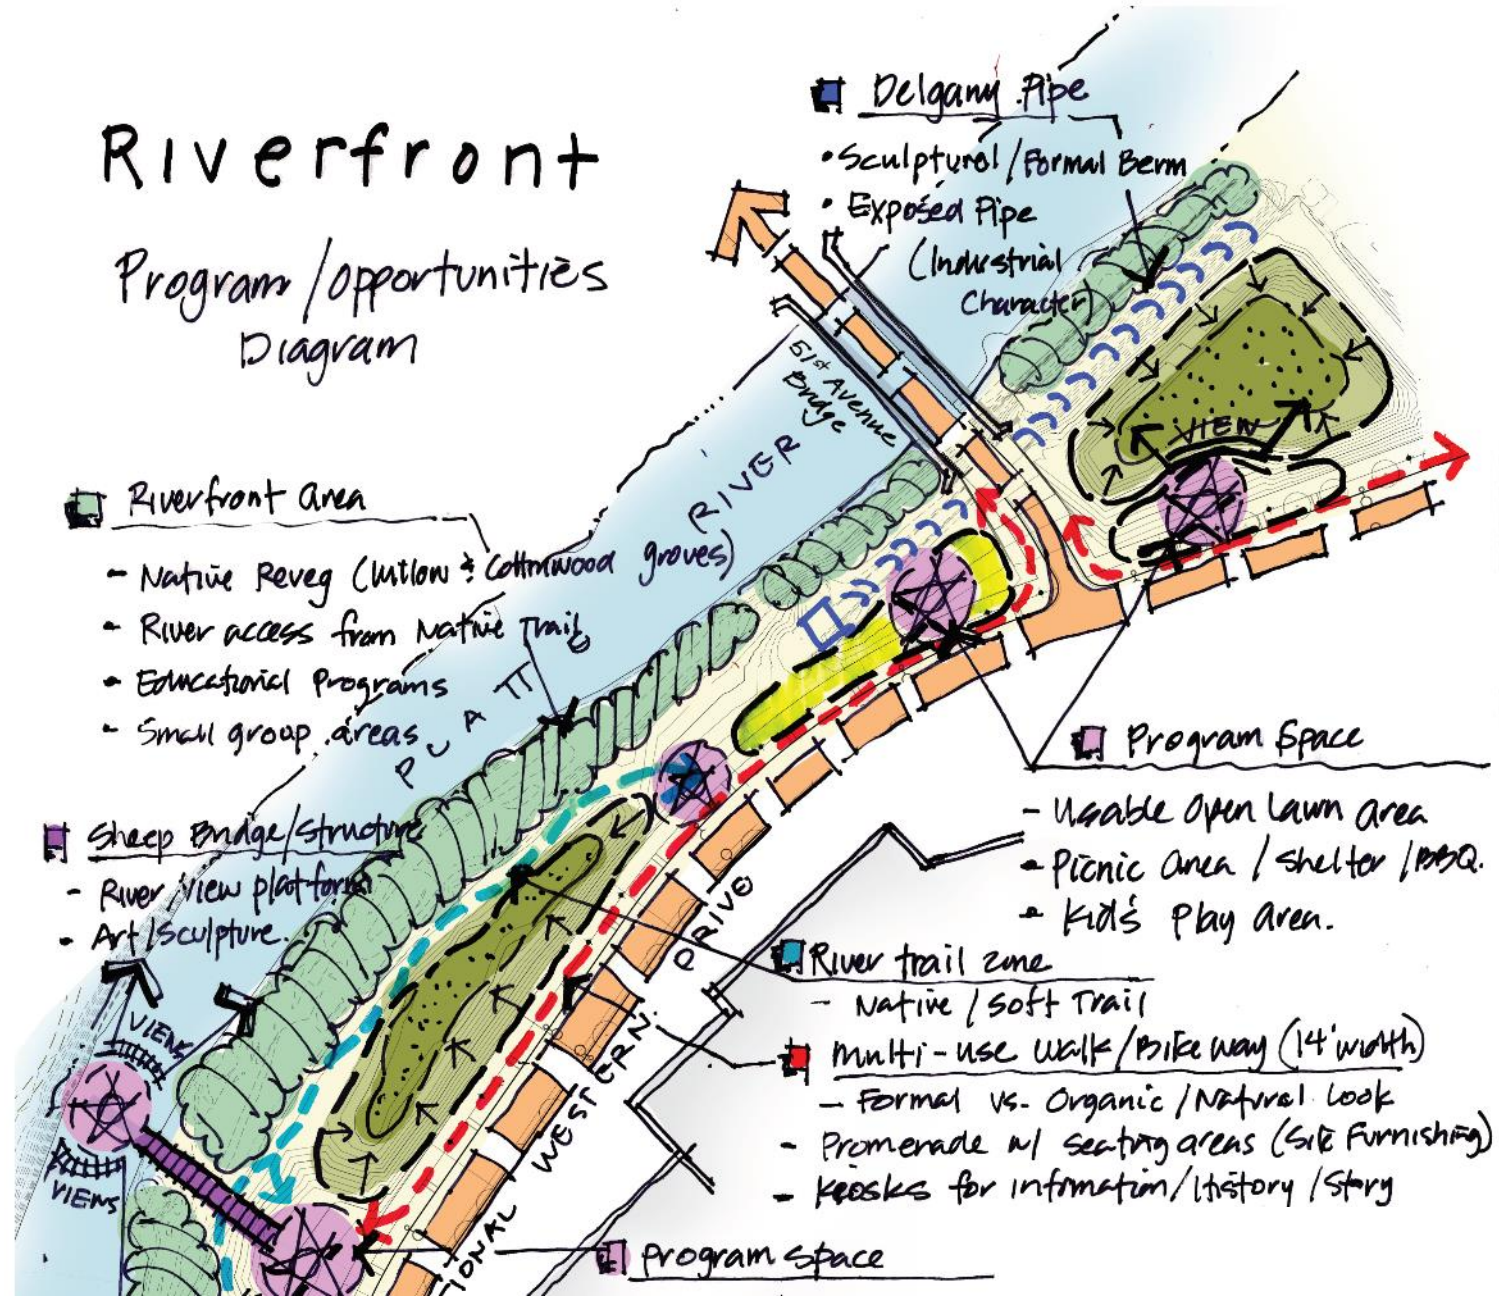 Riverfront
Program/opportunities
Diagram
Delgany Pipe
• Sculptural/Formal Berm
• Exposed Pipe
(Industrial
Character)
51st Avenue
Bridge
VIEW
PLATTE RIVER
Riverfront area
- Native Reveg (Willow & Cottonwood groves)
- River access from Native Trail
- Educational Programs
- Small group areas
Sheep Bridge/Structure
- River view platform
- Art/Sculpture.
VIEWS
VIEWS
Program Space
- Usable Open Lawn area
- Picnic area / Shelter / BBQ.
- Kid's Play area.
River trail zone
- Native / Soft Trail
Multi-use walk/Bikeway (14' width)
- Formal vs. Organic/Natural Look
- Promenade w/ seating areas (Site Furnishing)
- Kiosks for information/History/Story
Program space
IONAL WESTERN DRIVE